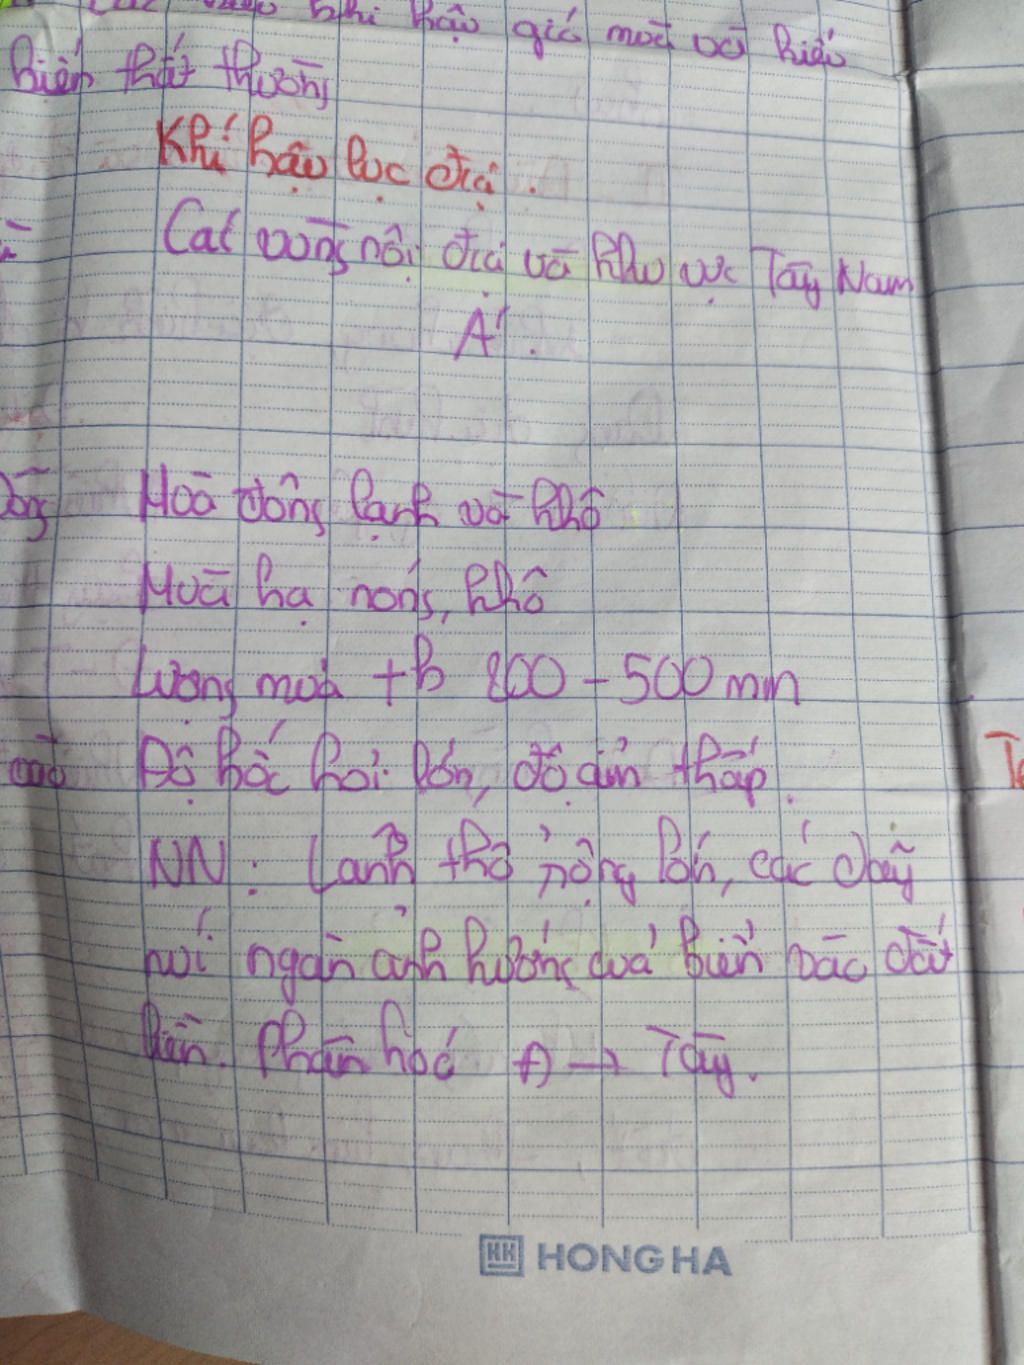 khí hậu gió mùa và kiểu
biến thất thường
Khí hậu lục địa.
Các vùng nội địa và khu vực Tây Nam
Á.
Mùa đông lạnh và khô
Mùa hạ nóng, khô
Lượng mưa tb 200 - 500 mm
cao Độ bốc hơi lớn, độ ẩm thấp.
NN: Lãnh thổ rộng lớn, các dãy
núi ngăn ảnh hưởng của biển vào đất
liền. Phân hoá Đ → Tây.
HONG HA